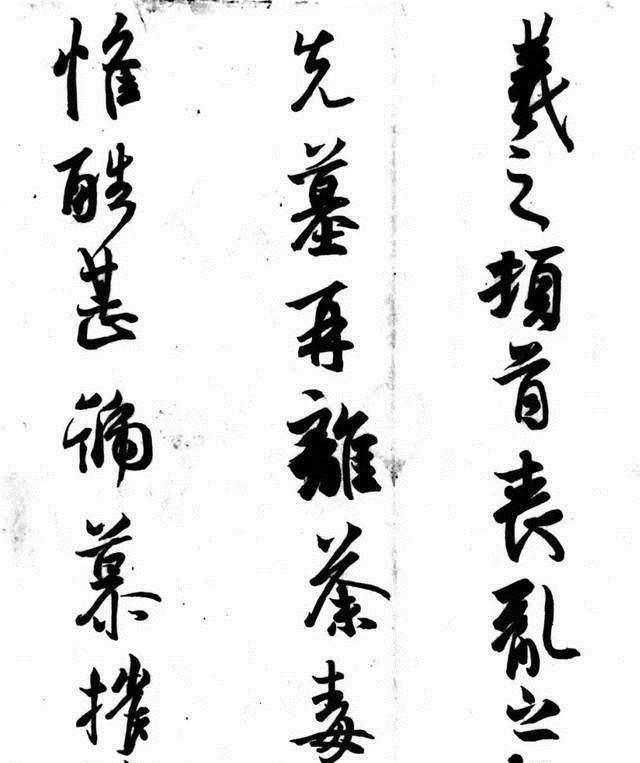 羲之頓首喪亂之
先墓再離荼毒
惟酷甚號慕摧